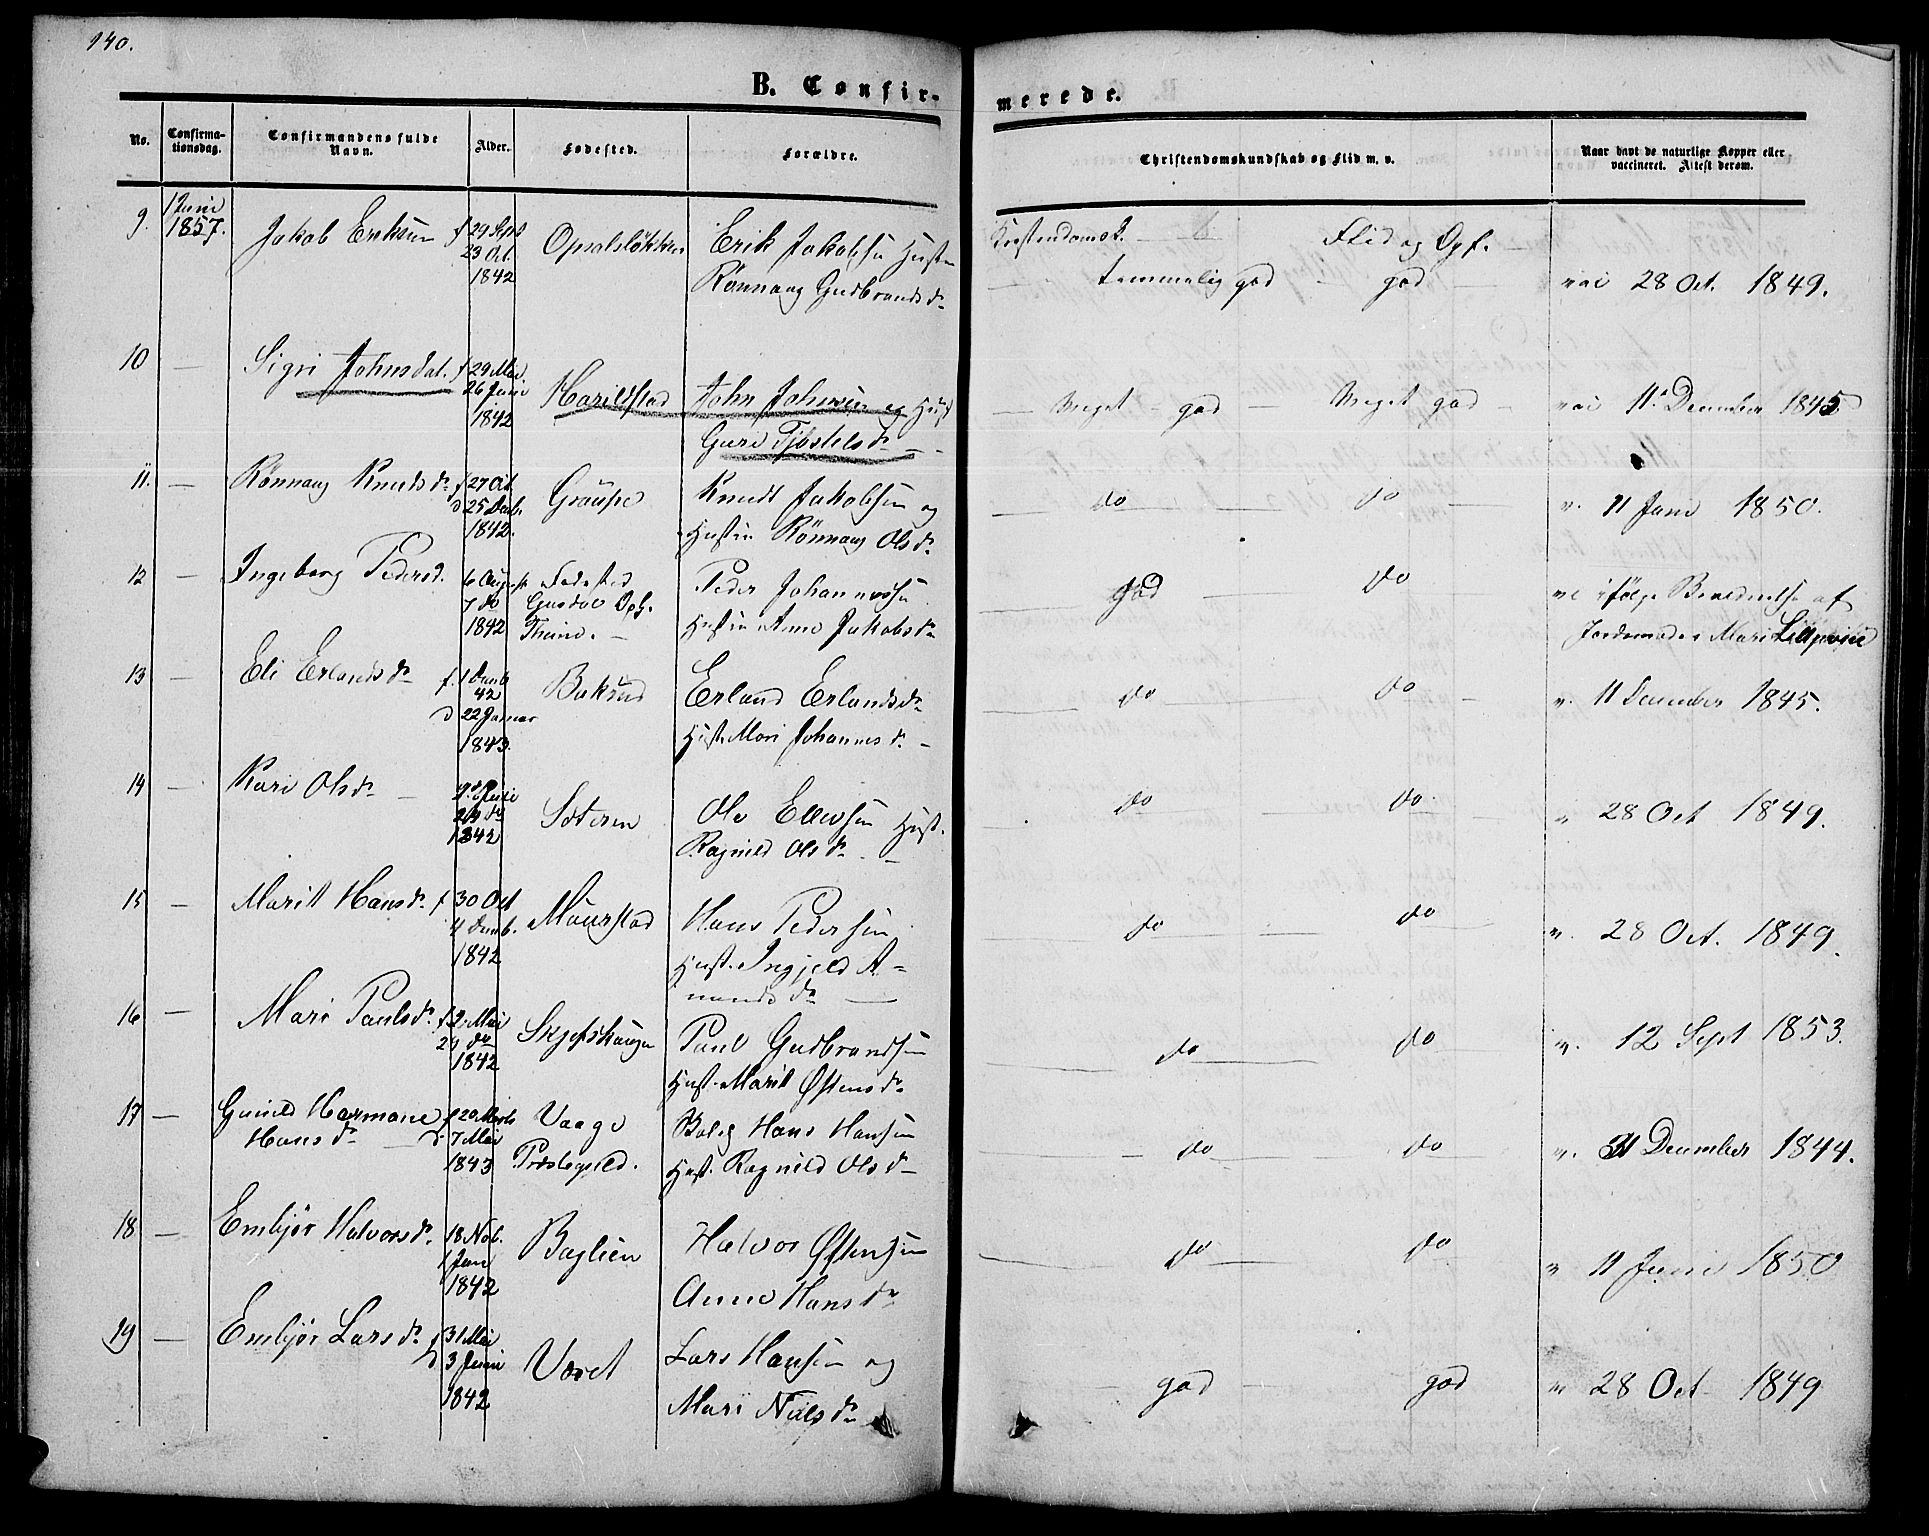 140.
B. Confir-
merede.
No.
Confirma-
tionsdag.
Confirmandens fulde
Navn.
Alder.
Fødested.
Forældre.
Christendomskundskab og Flid m. v.
Naar havt de naturlige Kopper eller
vaccineret. Attest derom.
9.
1 Juni
1857.
Jakob Eriksen
f 29 Sept
23 Oct.
1842
Opsalsløkken
Erik Jakobsen Hust
Rönnaug Gudbrandsdr
Kristendomsk. Flid og Opf.
temmelig god god
vac 28 Oct. 1849.
10 —
Sigri Johnsdat.
f 29 Mai
26 Juni
1842
Harildstad
John Johnsen og Hust
Guri Tjöstelsdr
Meget god Meget god
vac 11 December 1845
11. —
Rönnaug Knudsdr
f 27 Oct.
d 25 Decb.
1842.
Graupe
Knudt Jakobsen og
Hustru Rönnaug Olsdr
do do
v. 11 Juni 1850.
12 —
Ingeborg Pedersd.
6 August
7 do
1842
Fødested
Gusdal Opf.
Peder Johannessen
Hustru Anne Jakobsdr
god do
ifölge Bevidnelse af
Jordemoder Mari
13 —
Eli Erlandsdr
f. 1 Decb
42
d 22 Januar
1843.
Bakrud
Erland Erlandsdr
Hust. Mari Johannesdr
do do
v. 11 December 1845.
14 —
Kari Olsdr
do
1842
Sæteren
Ole Ellevsen Hust.
Ragnild Olsdr
do do
v 28 Oct 1849.
15 —
Marit Hansdr
f 30 Oct
4 Decemb.
1842
Maurstad
Hans Pedersen
Hust. Ingjeld A-
mundsdr
do do
v. 28 Oct. 1849.
16 —
Mari Paulsdr.
f 2 Mai
do
1842
Skjefshaugen
Paul Gudbrandsen
Hust. Marit Østensdr
do do
v. 12 Sept 1853.
17 —
Gunild Harmane
Hansdr
f 20 Marts
d. 7 Mai
1843
Vaage
Præstegjeld.
Hans Hansen
Hust. Ragnild Olsdr
do do
v. 31 December 1844.
18 —
Embjör Halvorsdr.
18 Nov.
1842
Baglien
Halvor Østensen
Anne Hansdr
do do
v 11 Juni 1850
19 —
Embjör Larsdr.
f 31 Mai
d 3 Juni
1842
Voret
Lars Hansen og
Mari Nielsdr
god god
v 28 Oct 1849